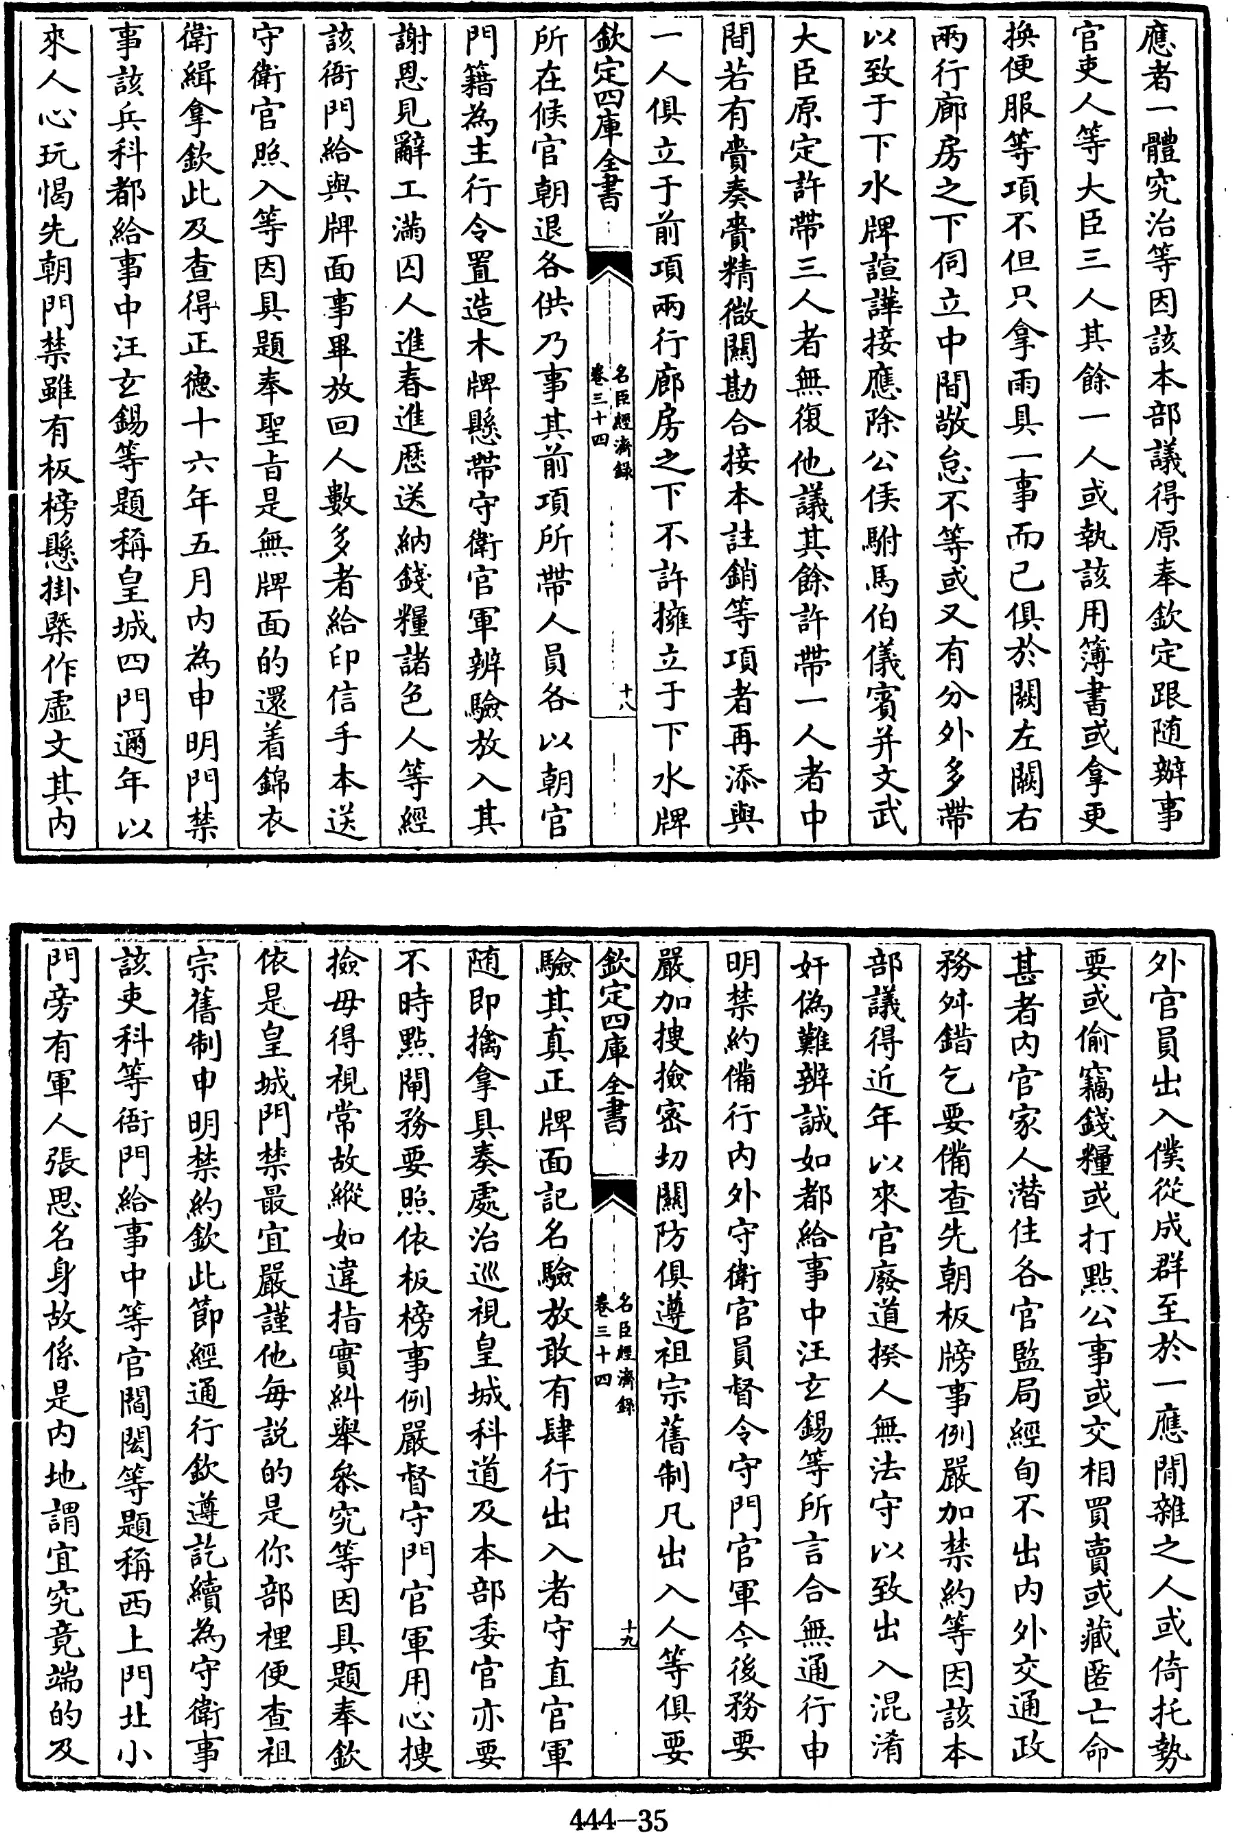 應者一體究治等因該本部議得原奉欽定跟随辦事
官吏人等大臣三人其餘一人或執該用簿書或拿更
換便服等項不但只拿雨具一事而已俱於闕左闕右
兩行廊房之下伺立中間敬怠不等或又有分外多帶
以致于下水牌諠譁接應除公侯駙馬伯儀賓并文武
大臣原定許帶三人者無復他議其餘許帶一人者中
間若有賫奏賫精微闗勘合接本註銷等項者再添與
一人俱立于前項兩行廊房之下不許擁立于下水牌
欽定四庫全書
名臣經濟録
卷三十四
十八
所在候官朝退各供乃事其前項所帶人員各以朝官
門籍為主行令置造木牌懸帶守衛官軍辨驗放入其
謝恩見辭工滿囚人進春進歷送納錢糧諸色人等經
該衙門給與牌面事畢放回人數多者給印信手本送
守衛官照入等因具題奉聖旨是無牌面的還着錦衣
衛緝拿欽此及查得正徳十六年五月内為申明門禁
事該兵科都給事中汪玄錫等題稱皇城四門邇年以
來人心玩愒先朝門禁雖有板榜懸掛槩作虛文其内
外官員出入僕從成群至於一應閒雜之人或倚托勢
要或偷竊錢糧或打點公事或交相買賣或藏匿亡命
甚者内官家人潜住各官監局經旬不出内外交通政
務舛錯乞要備查先朝板牓事例嚴加禁約等因該本
部議得近年以來官廢道揆人無法守以致出入混淆
奸偽難辨誠如都給事中汪玄錫等所言合無通行申
明禁約備行内外守衛官員督令守門官軍今後務要
嚴加搜撿宻切關防俱遵祖宗舊制凡出入人等俱要
欽定四庫全書
名臣經濟録
卷三十四
十九
驗其真正牌面記名驗放敢有肆行出入者守直官軍
随即擒拿具奏處治巡視皇城科道及本部委官亦要
不時點閘務要照依板榜事例嚴督守門官軍用心搜
撿毋得視常故縱如違指實糾舉叅究等因具題奉欽
依是皇城門禁最宜嚴謹他毎説的是你部裡便查祖
宗舊制申明禁約欽此節經通行欽遵訖續為守衛事
該吏科等衙門給事中等官閻閎等題稱西上門北小
門旁有軍人張思名身故係是内地謂宜究竟端的及
444-35